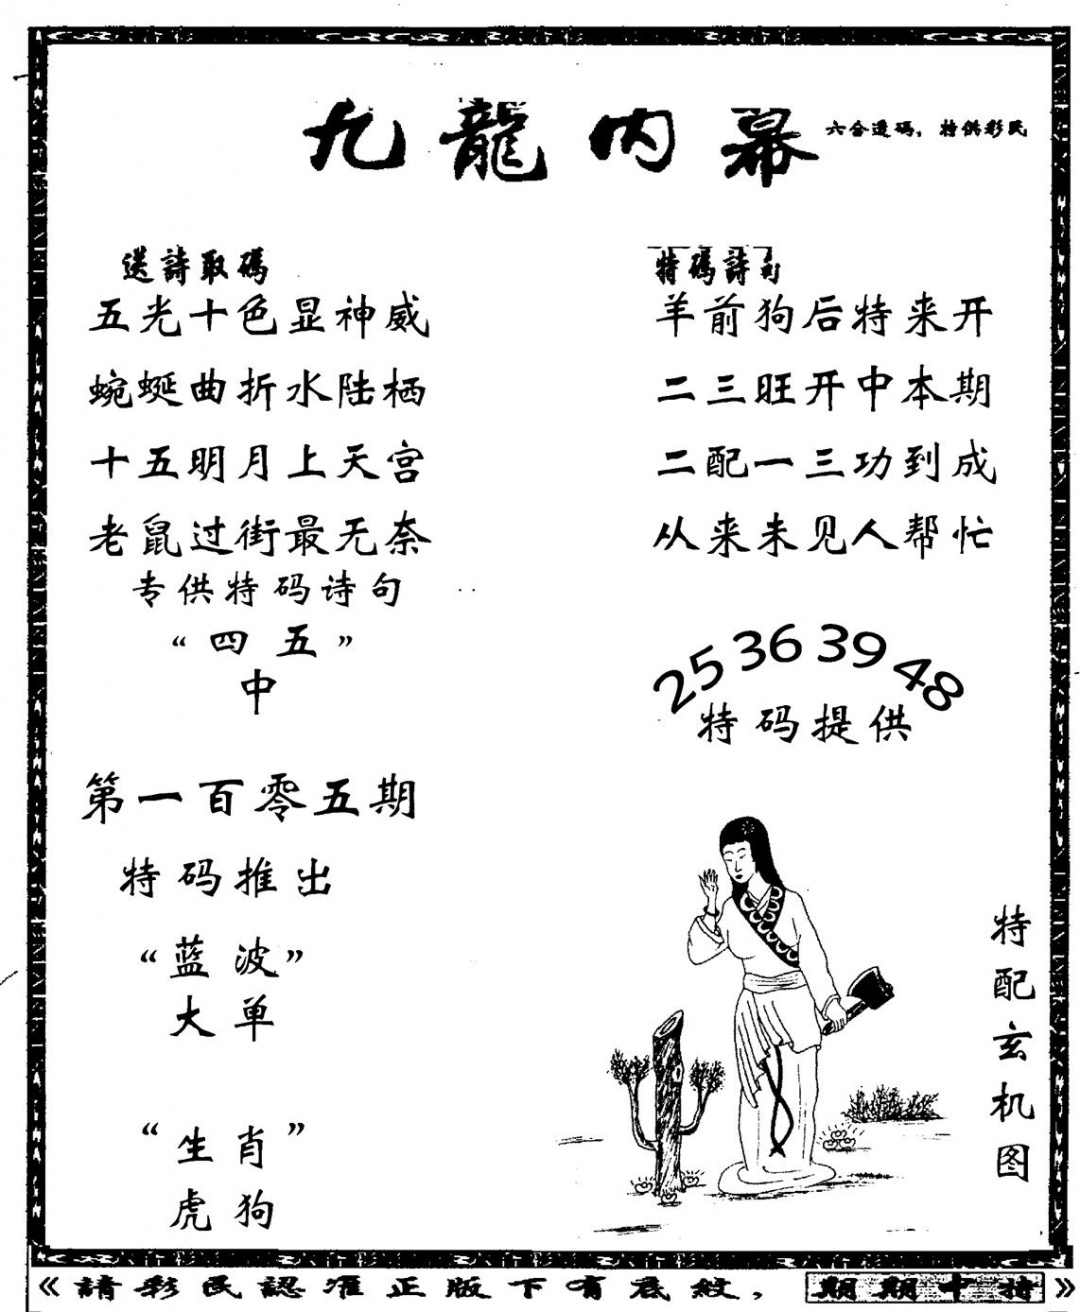 九龍内幕
六合透码，特供彩民
送詩取碼
五光十色显神威
蜿蜒曲折水陆栖
十五明月上天宫
老鼠过街最无奈
专供特码诗句
“四五”
中
第一百零五期
特码推出
“蓝波”
大单
“生肖”
虎狗
特碼詩句
羊前狗后特来开
二三旺开中本期
二配一三功到成
从来未见人帮忙
25 36 39 48
特码提供
特配玄机图
《請彩民認准正版下有底紋，期期中特》